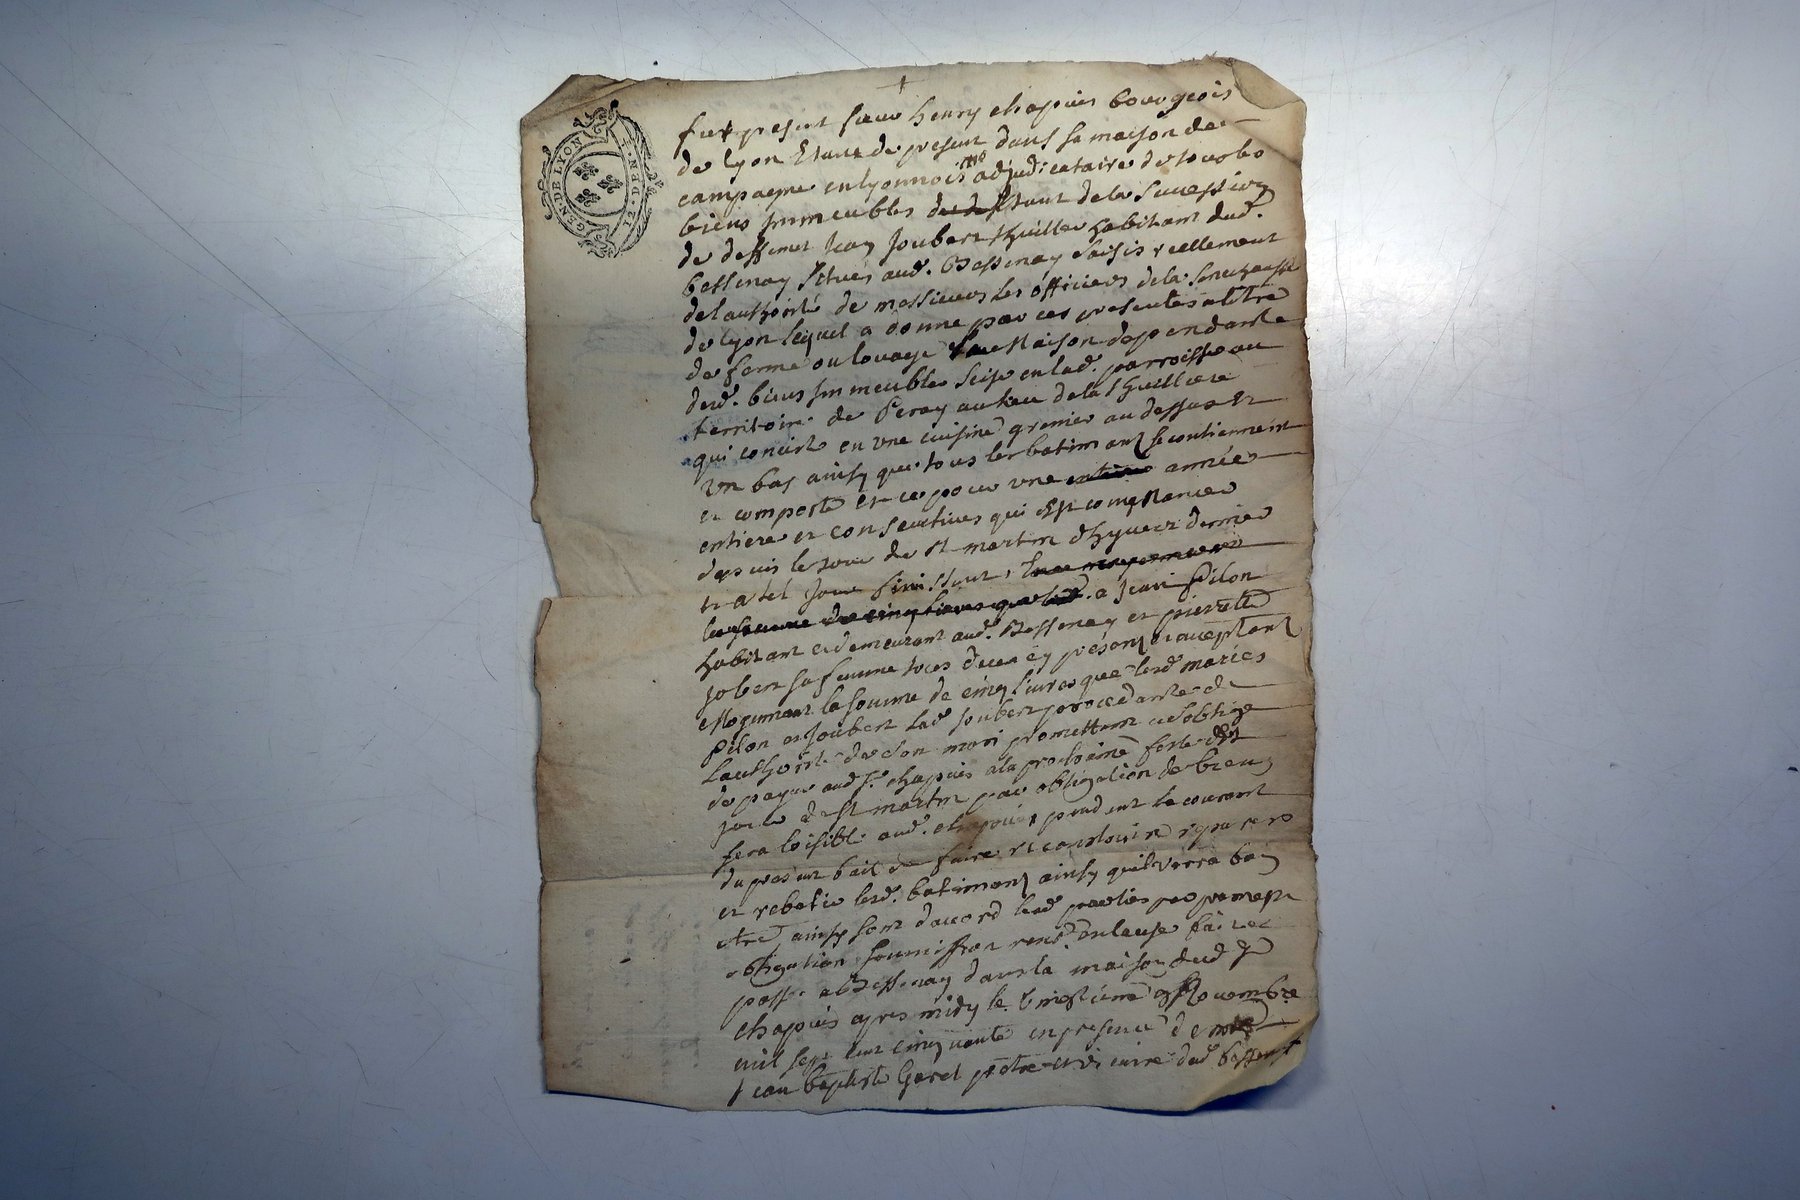 GEN. DE LYON
fut present sieur henry chapuis bourgeois
de lyon Etant de present dans sa maison de
campagne en lyonnois adjudicataire de tous les
biens Immeubles etant de la succession
de deffunt Jean Joubert thuillier habitant dud.
bessenay situés aud. Bessenay saisis reellement
de lauthorité de messieurs les officiers de la senechaussé
de lyon lequel a donne par ces presentes a titre
de ferme ou louage une Maison dependante
desd. biens Immeubles scise en lad. parroisse au
territoire de Peray au lieu de la thuilliere
qui consiste en une cuisine grenier au dessus et
un bas ainsy que tous les batimants se contiennent
et comporte et ce pour une année
entiere et consecutives qui est commancée
depuis le jour de st martin dhyver dernier
et a tel jour finissant,
a Jean Pilon
habitant et demeurant aud. Bessenay et pierrette
Jobert sa femme tous deux cy présents et acceptant
moyennant la somme de cinq livres que lesd mariés
Pilon et Joubert lad Joubert procedante de
lauthorité de son mari promettent et soblige
de payer aud Sr. chapuis a la prochaine feste et
jour de st martin par obligation de biens
sera loisible aud. chapuis pendent le courant
du present bail de faire et construire reparer
et rebatir lesd. batimants ainsy quil verra bon
etre ainsy sont daccord lesd parties par promesse
obligation soumission renon. en clause fait et
passé a Bessenay dans la maison dud Sr
chapuis apres midy le vingtieme Novembre
mil sept cent cinquante en presence de
Jean baptiste Garel prêtre et vicaire dud bessenay